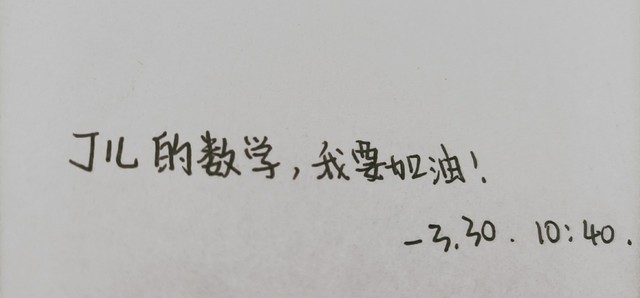 JIL的数学，我要加油！
-3.30. 10:40.